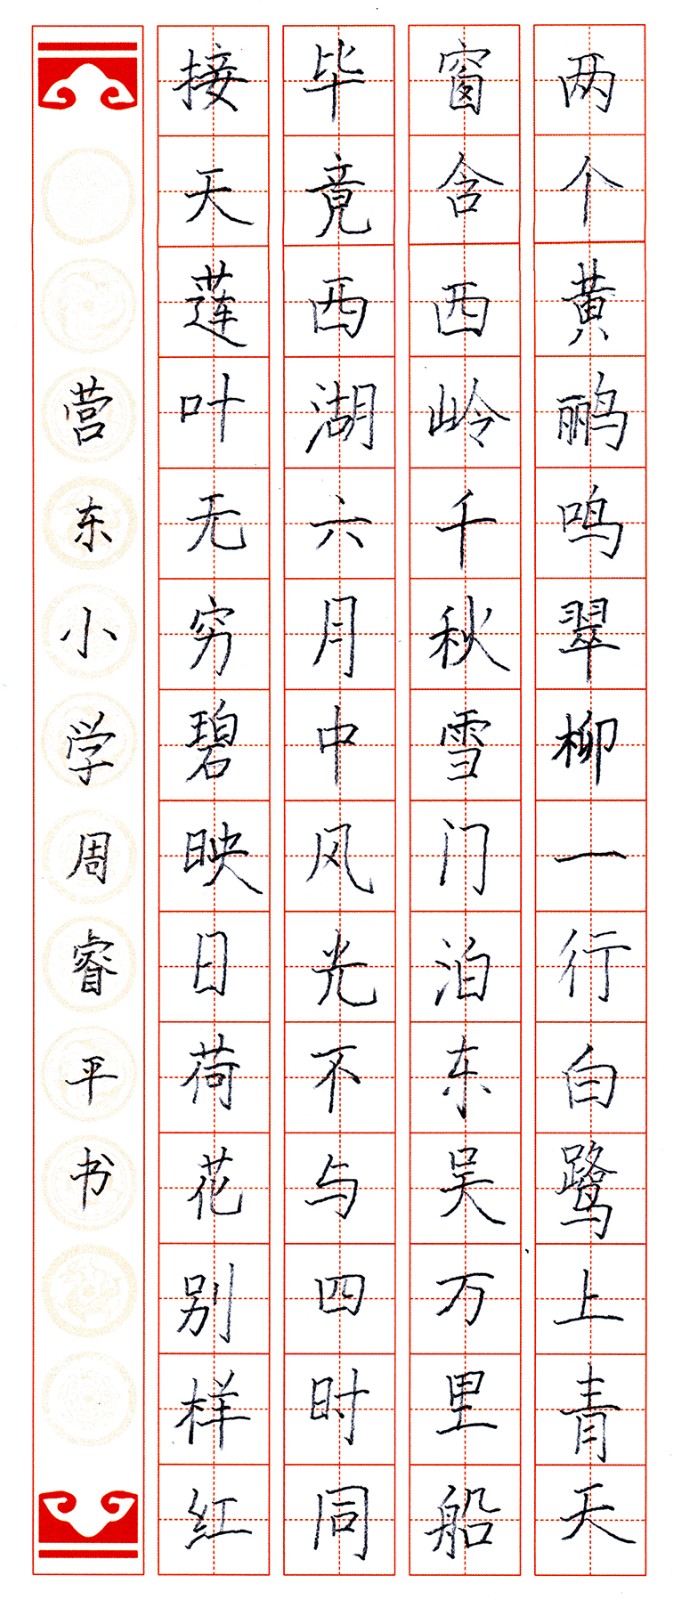 两个黄鹂鸣翠柳一行白鹭上青天
窗含西岭千秋雪门泊东吴万里船
毕竟西湖六月中风光不与四时同
接天莲叶无穷碧映日荷花别样红
营东小学周睿平书